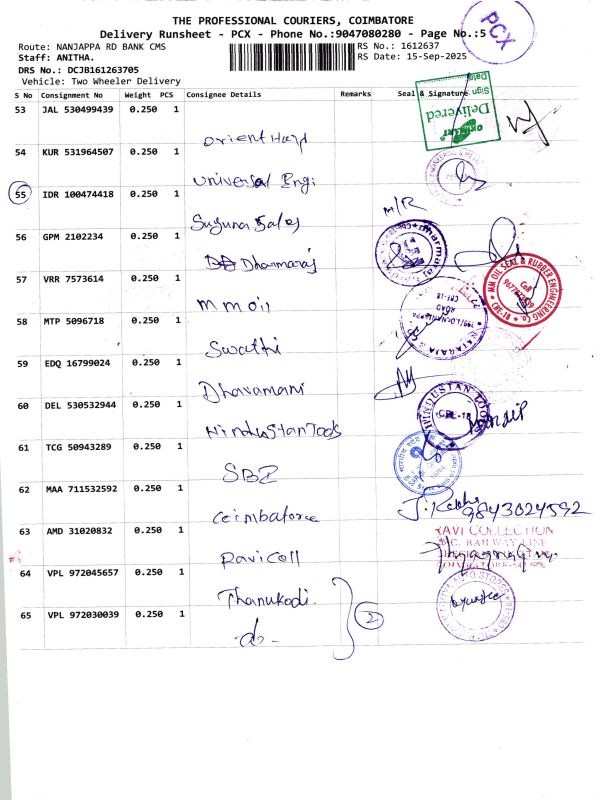 THE PROFESSIONAL COURIERS, COIMBATORE
Delivery Runsheet - PCX - Phone No.:9047080280 - Page No.:5
PCX
Route: NANJAPPA RD BANK CMS
RS No.: 1612637
Staff: ANITHA.
RS Date: 15-Sep-2025
DRS No.: DCJB161263705
Vehicle: Two Wheeler Delivery
S No Consignment No Weight PCS Consignee Details Remarks Seal & Signature
Sign Date
Delivered
53 JAL 530499439 0.250 1
Orient Hard
54 KUR 531964507 0.250 1
Universal Engi
55 IDR 100474418 0.250 1
Suguna Sales
M/R
56 GPM 2102234 0.250 1
Dharmaraj
57 VRR 7573614 0.250 1
MM OIL SEAL & RUBBER ENGINEERING Co.
m m oil
58 MTP 5096718 0.250 1
Swathi
59 EDQ 16799024 0.250 1
Dharamani
60 DEL 530532944 0.250 1
HINDUSTAN TOOLS
CBE-18
Hindustan Tools
61 TCG 50943289 0.250 1
SBI
62 MAA 711532592 0.250 1
Coimbatore
9843024592
63 AMD 31020832 0.250 1
RAVI COLLECTION
Ravicoll
64 VPL 972045657 0.250 1
Thanukodi.
65 VPL 972030039 0.250 1
-do-
2